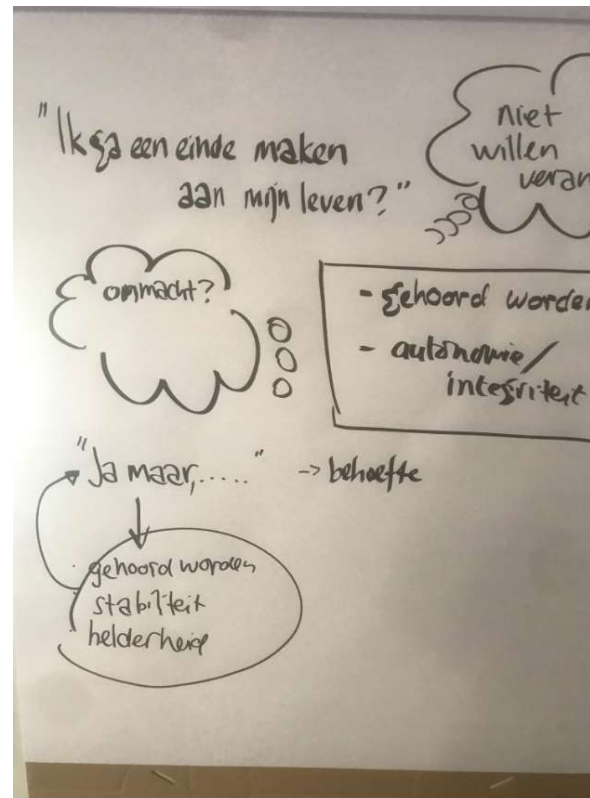 "Ik ga een einde maken
aan mijn leven?"
niet
willen
veran
onmacht?
- gehoord worden
- autonomie/
integriteit
"Ja maar,....." -> behoefte
gehoord worden
stabiliteit
helderheid